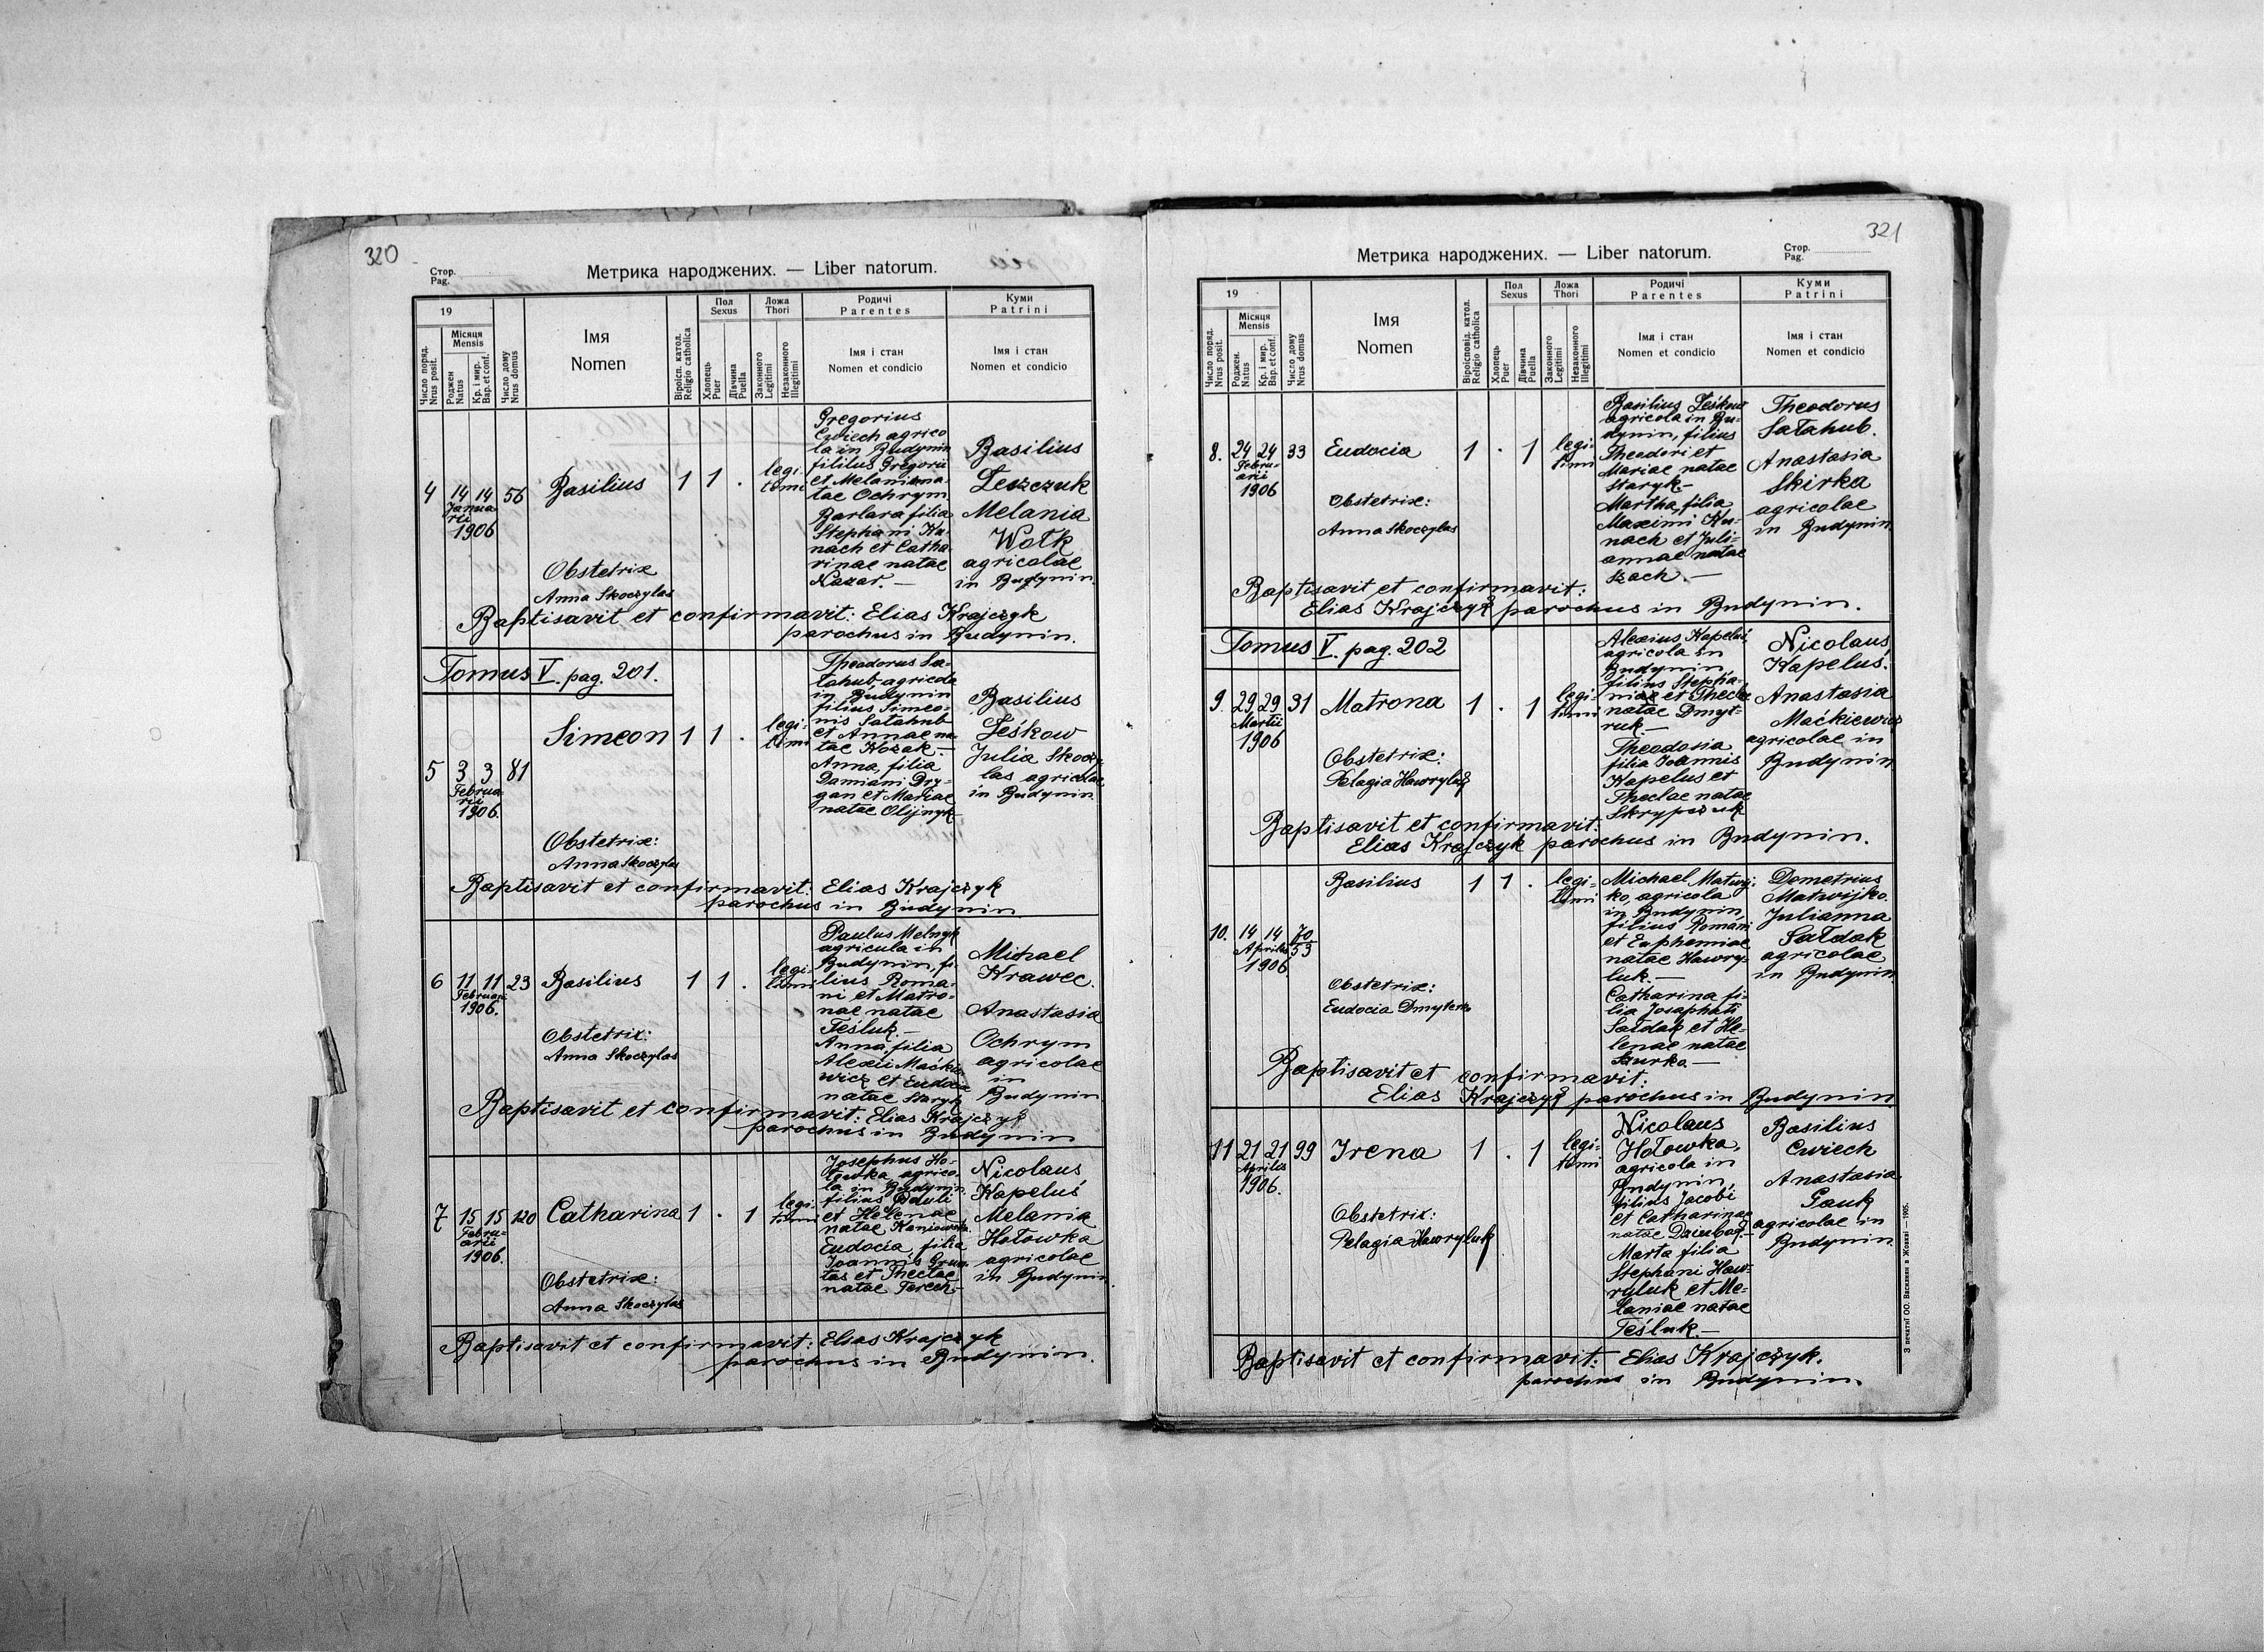 320
Стор.
Pag.
Метрика народжених. — Liber natorum.
19
Число поряд.
Nrus posit.
Місяця
Mensis
Роджен
Natus
Кр. і мир.
Bap. et conf.
Число дому
Nrus domus
Імя
Nomen
Віроісп. катол.
Religio catholica
Пол
Sexus
Хлопець
Puer
Дївчина
Puella
Ложа
Thori
Законного
Legitimi
Незаконного
Illegitimi
Родичі
Parentes
Імя і стан
Nomen et condicio
Куми
Patrini
Імя і стан
Nomen et condicio
4 14 14 56 Basilius 1 1 .
Janua
rii
1906
legi
timi
Gregorius
Cwiech agrico
la in Budynin
filius Gregorii
et Melaniae na
tae Ochrym
Barbara filia
Stephani Ku
nach et Catha
rinae natae
Nazar. —
Basilius
Leszczuk
Melania
Wołk
agricolae
in Budynin.
Obstetrix
Anna Skoczylas
Baptisavit et confirmavit: Elias Krajczyk
parochus in Budynin.
Tomus V. pag. 201.
5 3 3 81 Simeon 1 1 .
Februa
rii
1906.
legi
timi
Theodorus Sa-
łahub, agricola
in Budynin
filius Simeo-
nis Sałahub
et Annae na
tae Kozak. —
Anna, filia
Damiani Dry-
gan et Mariae
natae Olijnyk
Basilius
Leśkow
Julia Skoczy
las agricolae
in Budynin.
Obstetrix:
Anna Skoczylas
Baptisavit et confirmavit: Elias Krajczyk
parochus in Budynin
6 11 11 23 Basilius 1 1 .
Februari
1906.
legi-
timi
Paulus Melnyk
agricula in
Budynin, fi-
lius Roma-
ni et Matro-
nae natae
Teśluk. —
Anna, filia
Alexii Maćkie
wicz et Eudocia
natae Staryk
Michael
Krawec.
Anastasia
Ochrym
agricolae
in
Budynin.
Obstetrix:
Anna Skoczylas
Baptisavit et confirmavit: Elias Krajczyk
parochus in Budynin
7 15 15 120 Catharina 1 . 1
Febru-
arii
1906.
legi-
timi
Josephus Ho-
łowka agrico-
la in Budynin,
filius Pauli
et Helenae
natae
Eudocia, filia
Joannis
et Theclae
natae Terech. —
Nicolaus
Kapeluś
Melania
Hołowka
agricolae
in Budynin.
Obstetrix:
Anna Skoczylas
Baptisavit et confirmavit: Elias Krajczyk
parochus in Budynin.
321
Стор.
Pag.
Метрика народжених. — Liber natorum.
19
Число поряд.
Nrus posit.
Місяця
Mensis
Роджен.
Natus
Кр. і мир.
Bap. et conf.
Число дому
Nrus domus
Імя
Nomen
Віроісповід. катол.
Religio catholica
Пол
Sexus
Хлопець
Puer
Дївчина
Puella
Ложа
Thori
Законного
Legitimi
Незаконного
Illegitimi
Родичі
Parentes
Імя і стан
Nomen et condicio
Куми
Patrini
Імя і стан
Nomen et condicio
8. 24 24 33 Eudocia 1 . 1
Febru-
arii
1906
legi-
timi
Basilius Leśkow
agricola in Bu-
dynin, filius
Theodori et
Mariae natae
Staryk. —
Martha, filia
Maximi Ku-
nach et Juli-
annae natae
Szach. —
Theodorus
Sałahub.
Anastasia
Skirka
agricolae
in Budynin.
Obstetrix:
Anna Skoczylas
Baptisavit et confirmavit:
Elias Krajczyk parochus in Budynin.
Tomus V. pag. 202
9. 29 29 31 Matrona 1 . 1
Martii
1906
legi-
timi
Alexius Kapeluś
agricola in
Budynin,
filius Stepha-
ni et Theclae
natae Dmyt-
ruk. —
Theodosia
filia Joannis
Kapelus et
Theclae natae
Skrypczuk
Nicolaus
Kapeluś.
Anastasia
Maćkiewicz
agricolae in
Budynin.
Obstetrix:
Pelagia Hawryluk
Baptisavit et confirmavit:
Elias Krajczyk parochus in Budynin.
10. 14 14 70/53 Basilius 1 1 .
Aprilis
1906
legi-
timi
Michael Matwij-
ko, agricola
in Budynin,
filius Romani
et Euphemiae
natae Hawry-
luk. —
Catharina fi-
lia Josaphati
Sałdak et He-
lenae natae
Demetrius
Matwijko.
Julianna
Sałdak
agricolae
in Budynin.
Obstetrix:
Eudocia Dmyterko
Baptisavit et confirmavit:
Elias Krajczyk parochus in Budynin.
11 21 21 99 Irena 1 . 1
Aprilis
1906.
legi-
timi
Nicolaus
Hołowka,
agricola in
Budynin,
filius Jacobi
et Catharinae
natae
Marta filia
Stephani Haw-
ryluk et Me-
laniae natae
Teśluk. —
Basilius
Cwiech
Anastasia
Gauk
agricolae in
Budynin.
Obstetrix:
Pelagia Hawryluk
Baptisavit et confirmavit: Elias Krajczyk.
parochus in Budynin.
З печатнї ОО. Василиян в Жовкві — 1905.